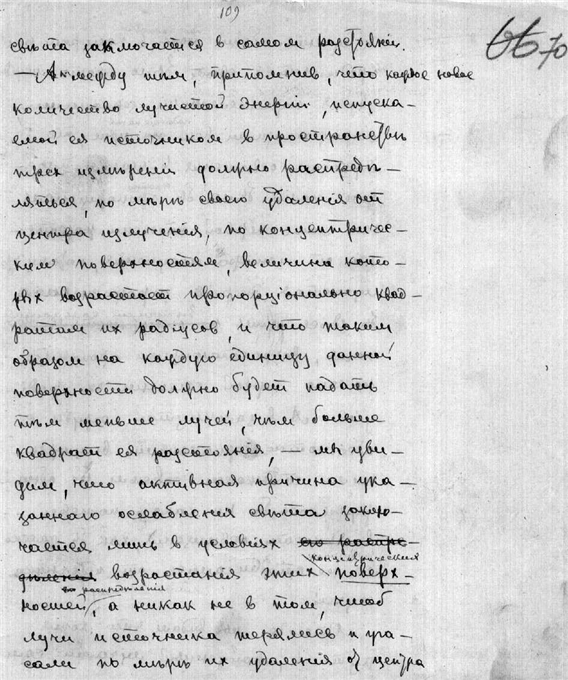 109
70
свѣта заключается в самом разстояніи.
— А между тѣм, припомнив, что каждое новое
количество лучистой энергіи, испуска-
емой ея источником в пространствѣ
трех измѣреній должно распредѣ-
ляться, по мѣрѣ своего удаленія от
центра излученія, по концентричес-
ким поверхностям, величина кото-
рых возрастает пропорціонально квад-
ратам их радіусов, и что таким
образом на каждую единицу данной
поверхности должно будет падать
тѣм меньше лучей, чѣм больше
квадрат ея разстоянія, — мы уви-
дим, что активная причина ука-
заннаго ослабленія свѣта заклю-
чается лишь в условіях его распре-
концентрических
дѣленія возрастания этих поверх-
его распредѣления
ностей, а никак не в том, чтоб
лучи источника терялись и уга-
сали по мѣрѣ их удаленія от центра